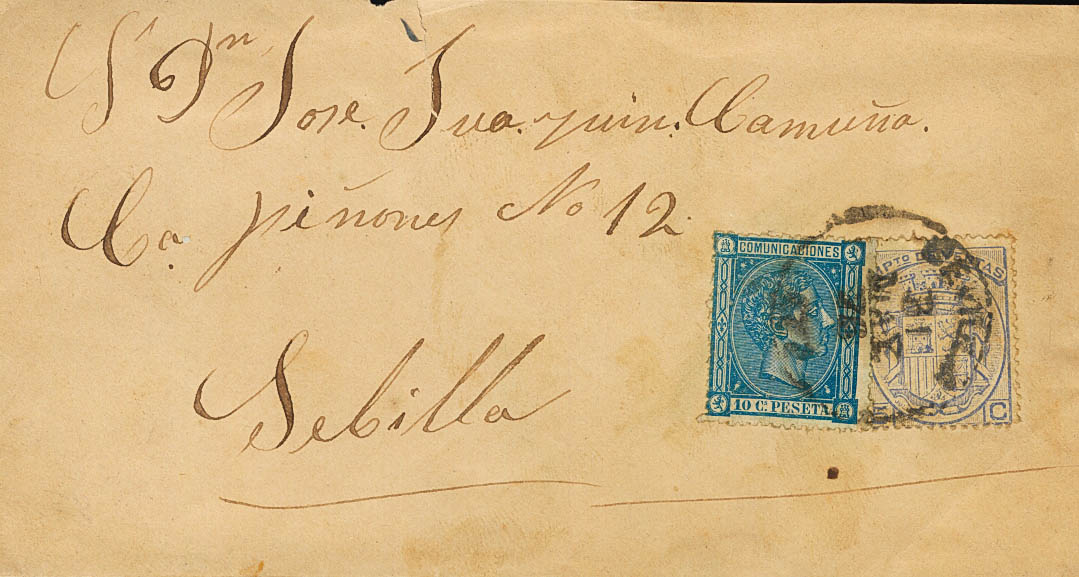 Sr Dn Jose. Juaquin. Camuña.
Ca piñones No 12.
Sebilla
COMUNICACIONES
10 Cs PESETA
IMPTO DE
5 C
SEVILLA